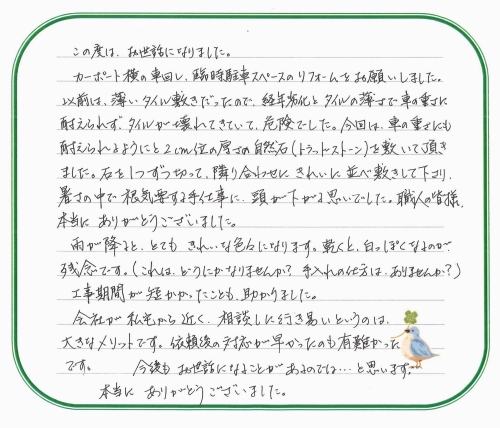 この度は、お世話になりました。
カーポート横の車回し、臨時駐車スペースのリフォームをお願いしました。
以前は、薄いタイル敷きだったので、経年劣化とタイルの薄さで車の重さに
耐えられず、タイルが壊れてきていて、危険でした。今回は、車の重さにも
耐えられるようにと2cm位の厚さの自然石(トラットストーン)を敷いて頂き
ました。石を1つずつ切って、隣り合わせに きれいに 並べ敷きして下さり、
暑さの中で 根気要する手仕事に、頭が下がる思いでした。職人の皆様、
本当に ありがとうございました。
雨が降ると、とても きれいな色々になります。乾くと、白っぽくなるのが
残念です。(これは、どうにかなりませんか? 手入れの仕方は、ありませんか?)
工事期間が 短かかったことも、助かりました。
会社が 私宅から 近く、相談しに行き易いというのは、
大きなメリットです。依頼後の対応が早かったのも有難かった
です。 今後も お世話になることがあるのでは…と思います。
本当に ありがとうございました。